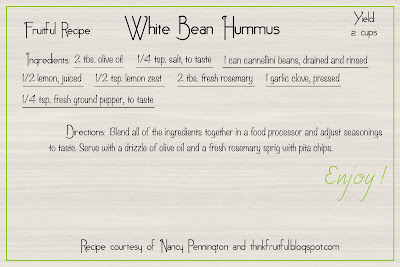 Fruitful Recipe: White Bean Hummus Yield: 2 cups
Ingredients: 2 tbs. olive oil 1/4 tsp. salt, to taste 1 can cannellini beans, drained and rinsed
1/2 lemon, juiced 1/2 tsp. lemon zest 2 tbs. fresh rosemary 1 garlic clove, pressed
1/4 tsp. fresh ground pepper, to taste
Directions: Blend all of the ingredients together in a food processor and adjust seasonings
to taste. Serve with a drizzle of olive oil and a fresh rosemary sprig with pita chips.
Enjoy!
Recipe courtesy of Nancy Pennington and thinkfruitful.blogspot.com